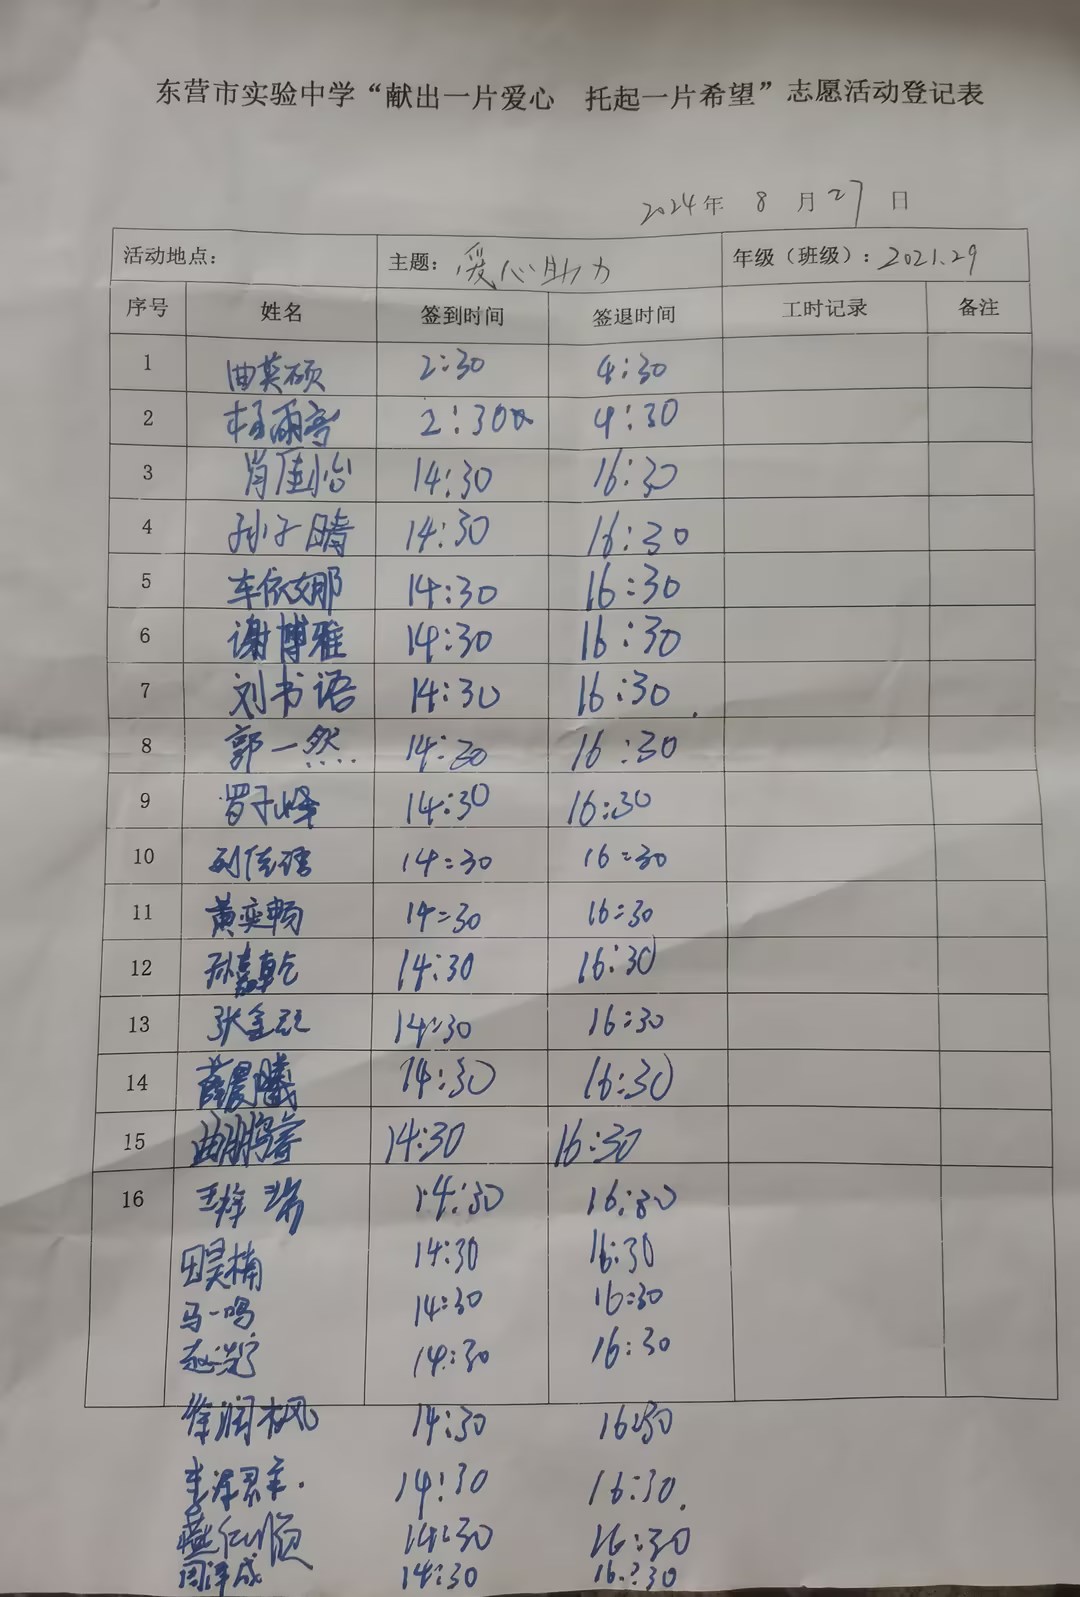 东营市实验中学“献出一片爱心　托起一片希望”志愿活动登记表
2024年 8 月 27 日
活动地点： 主题：爱心助力 年级（班级）：2021.29
序号 姓名 签到时间 签退时间 工时记录 备注
1 曲英硕 2:30 4:30
2 杨雨亭 2:30 4:30
3 肖佳怡 14:30 16:30
4 孙子晴 14:30 16:30
5 车依娜 14:30 16:30
6 谢博雅 14:30 16:30
7 刘书语 14:30 16:30
8 郭一然 14:30 16:30
9 罗子烽 14:30 16:30
10 刘佳语 14:30 16:30
11 黄奕畅 14:30 16:30
12 孙嘉乾 14:30 16:30
13 张金 14:30 16:30
14 薛晨曦 14:30 16:30
15 曲鹏睿 14:30 16:30
16 王梓瑞 14:30 16:30
田昊楠 14:30 16:30
马一鸣 14:30 16:30
赵 14:30 16:30
徐润枫 14:30 16:30
李泽 14:30 16:30
燕仁顺 14:30 16:30
周泽成 14:30 16:30